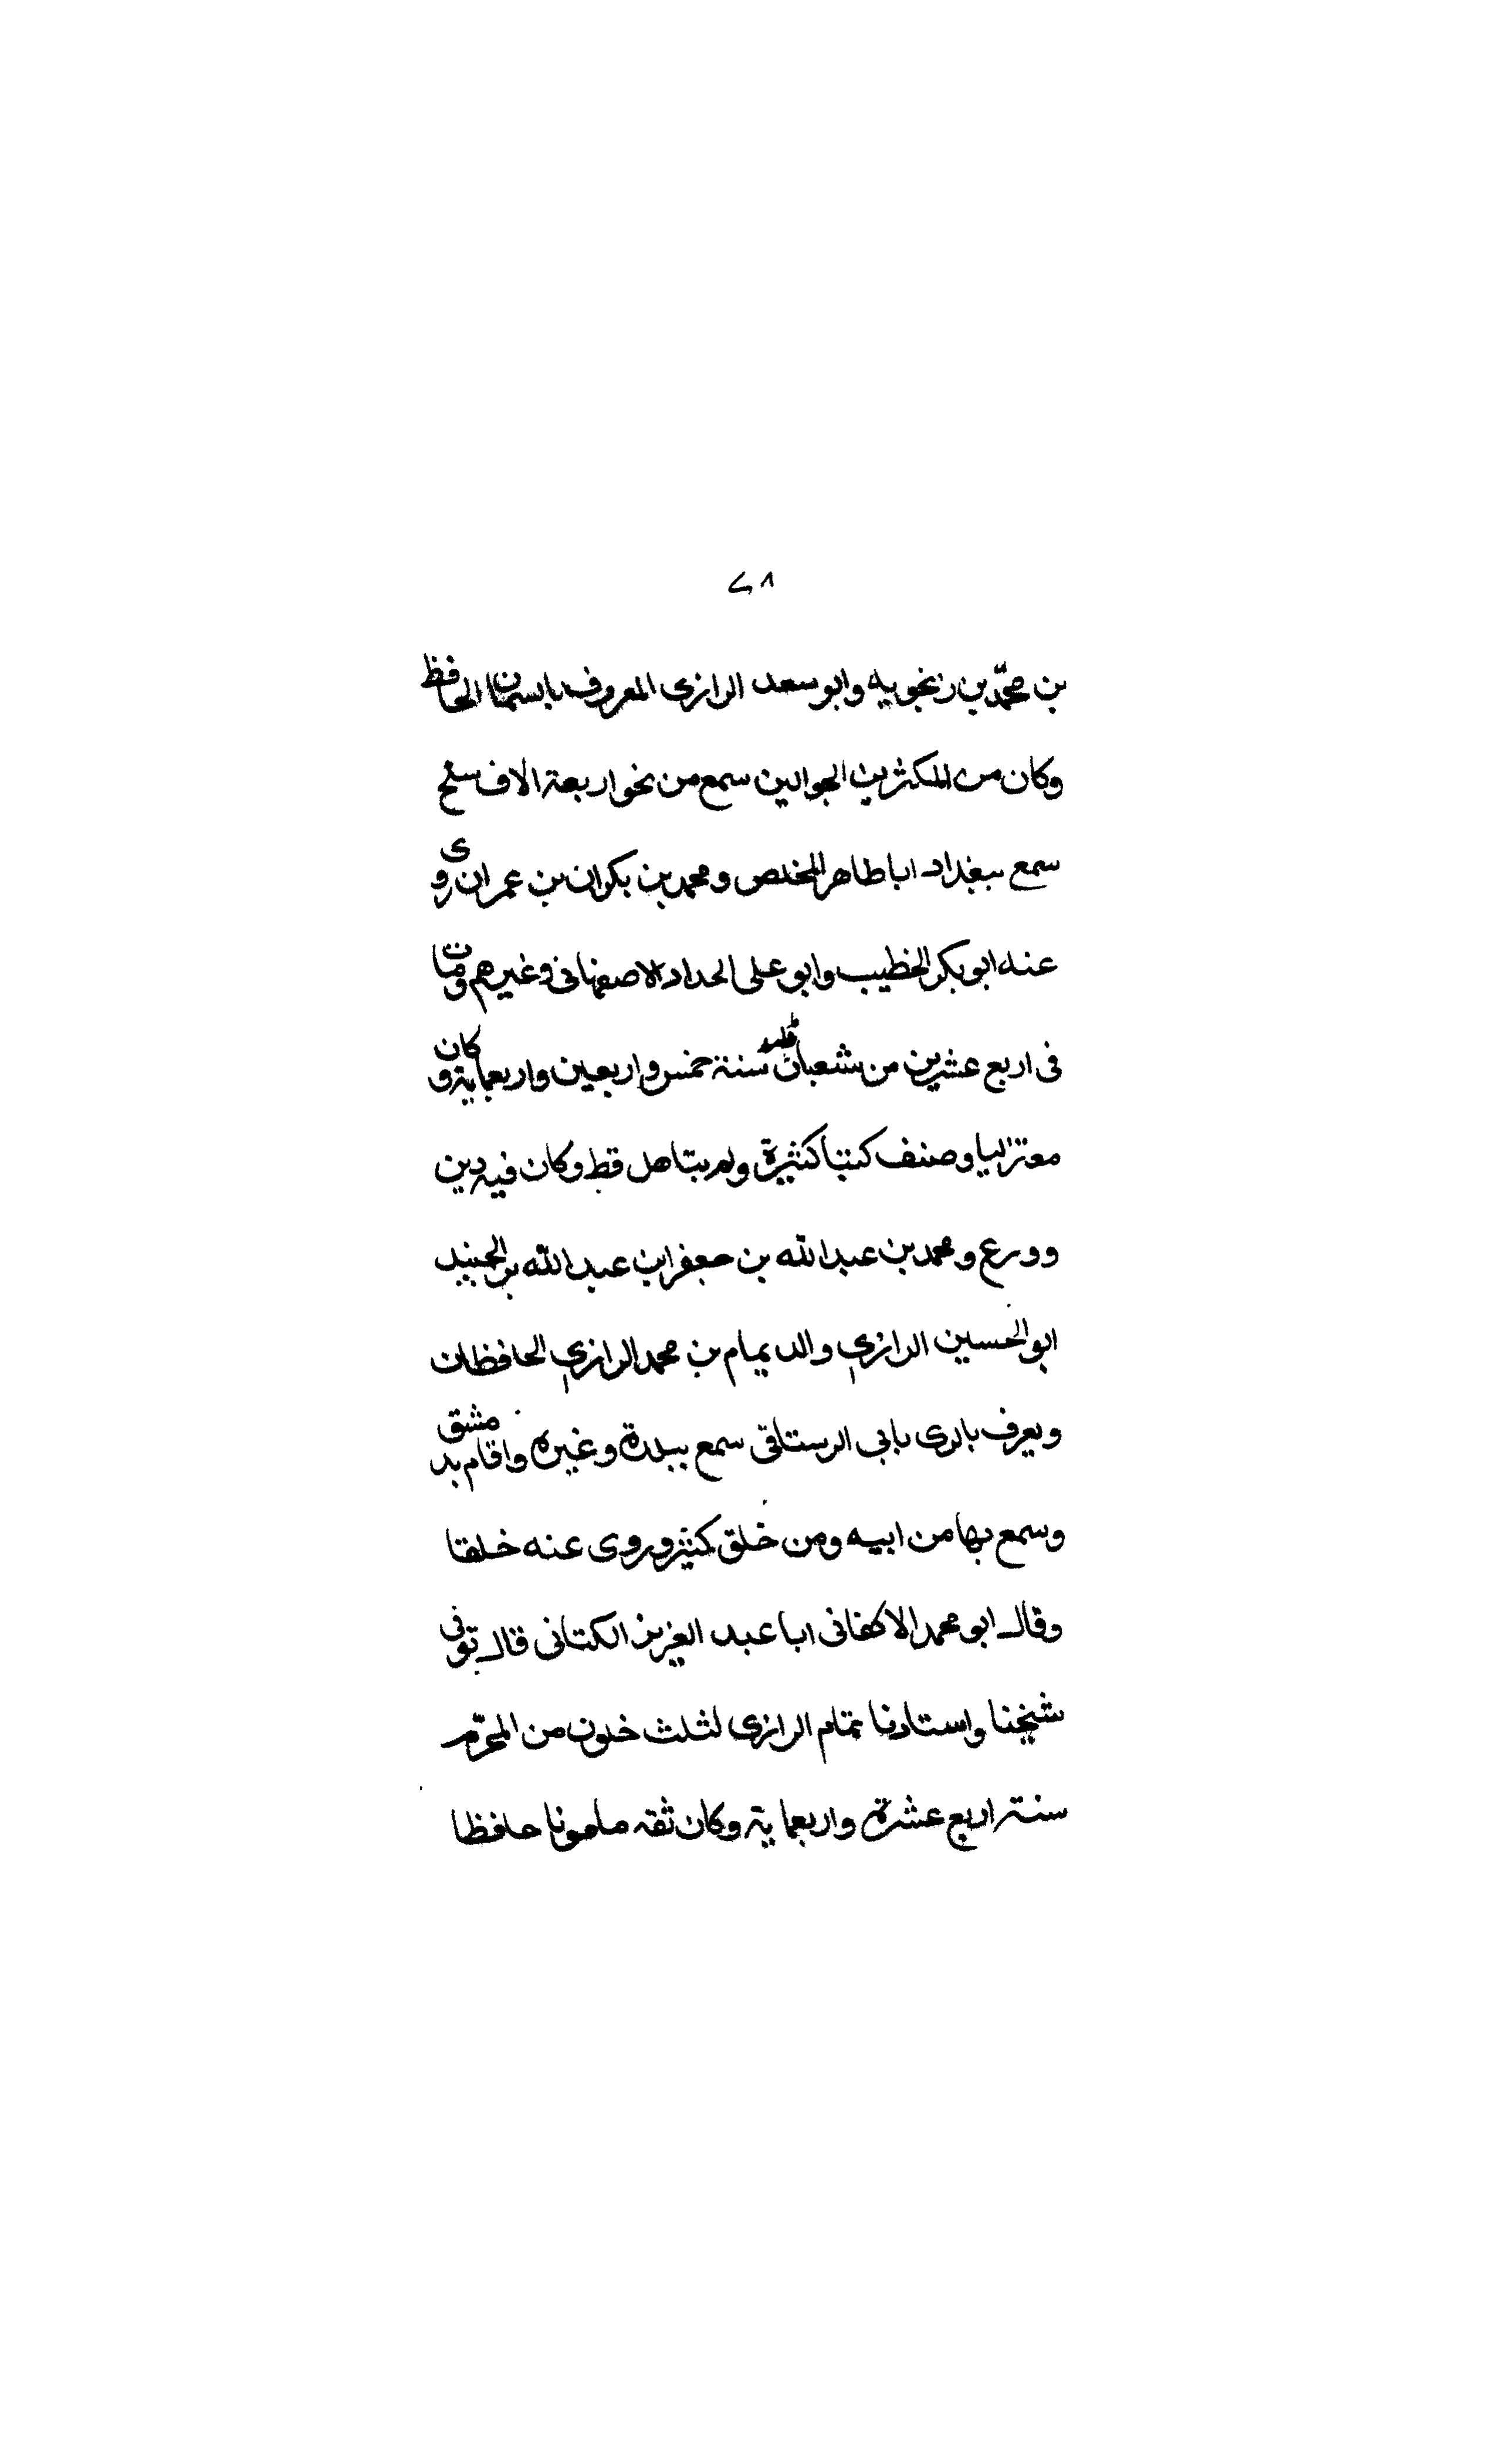 ٧٨
بن محمّد بن زنجويه وابو سعد الرازى المعروف بابسمان الحافظ
وكان من المكثرين الجوالين سمع من نحو اربعة الاف سلخ
سمع ببغداد ابا طاهر المخلص ومحمد بن بكران بن عمران وروى
عنه ابو بكر الخطيب وابو على الحداد الاصفهانى وغيرهم ومات
فى اربع عشرين من شعبان سنة خمس واربعين واربعماية وكان
معتزليا وصنف كتبا كثيرة ولم يتاهل قط وكان فيه دين
وورع ومحمد بن عبد الله بن جعفر ابن عبد الله بن الجنيد
ابو الحسين الرازي والد يمام بن محمد الرازي الحافظان
ويعرف بالرى بابى الرستاقى سمع ببلدة وغيره واقام بدمشق
وسمع بها من ابيه ومن خلق كثير وروى عنه خلقا
وقال ابو محمد الاكفانى ابا عبد العزيز الكتانى قال توفى
شيخنا واستادنا تمام الرازى لثلث خلون من المحرّم
سنة اربع عشرة واربعماية وكان ثقه مامونا حافظا